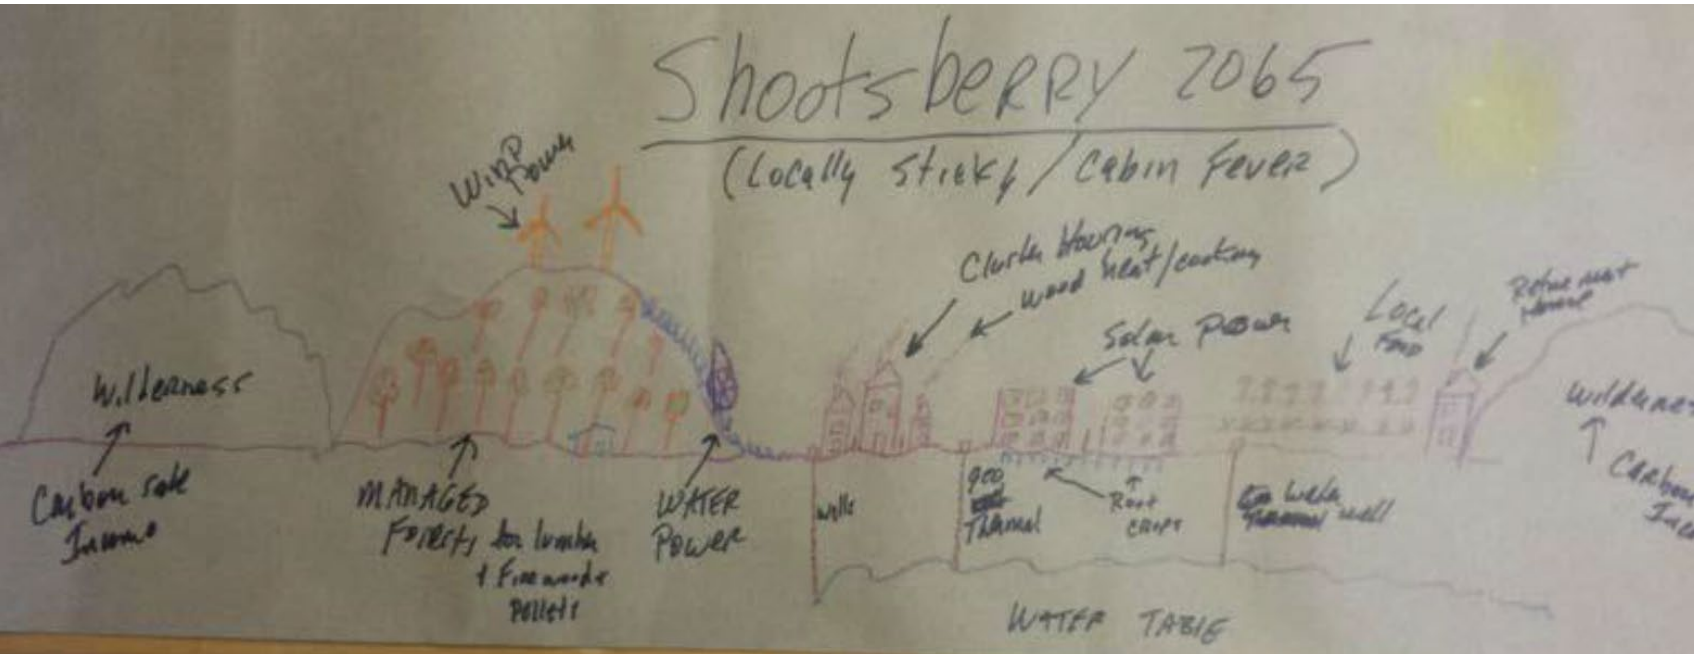 Shootsberry 2065
(Locally Sticky / Cabin Fever)
Wind
Power
Cluster Housing
wood heat/cooking
Solar Power
Local
Food
Retirement
Home
Wilderness
Carbon sale
Income
MANAGED
Forests for lumber
+ Firewood +
Pellets
WATER
Power
wells
geo
Thermal
Root
crops
water
well
Wilderness
Carbon
Inco
WATER TABLE